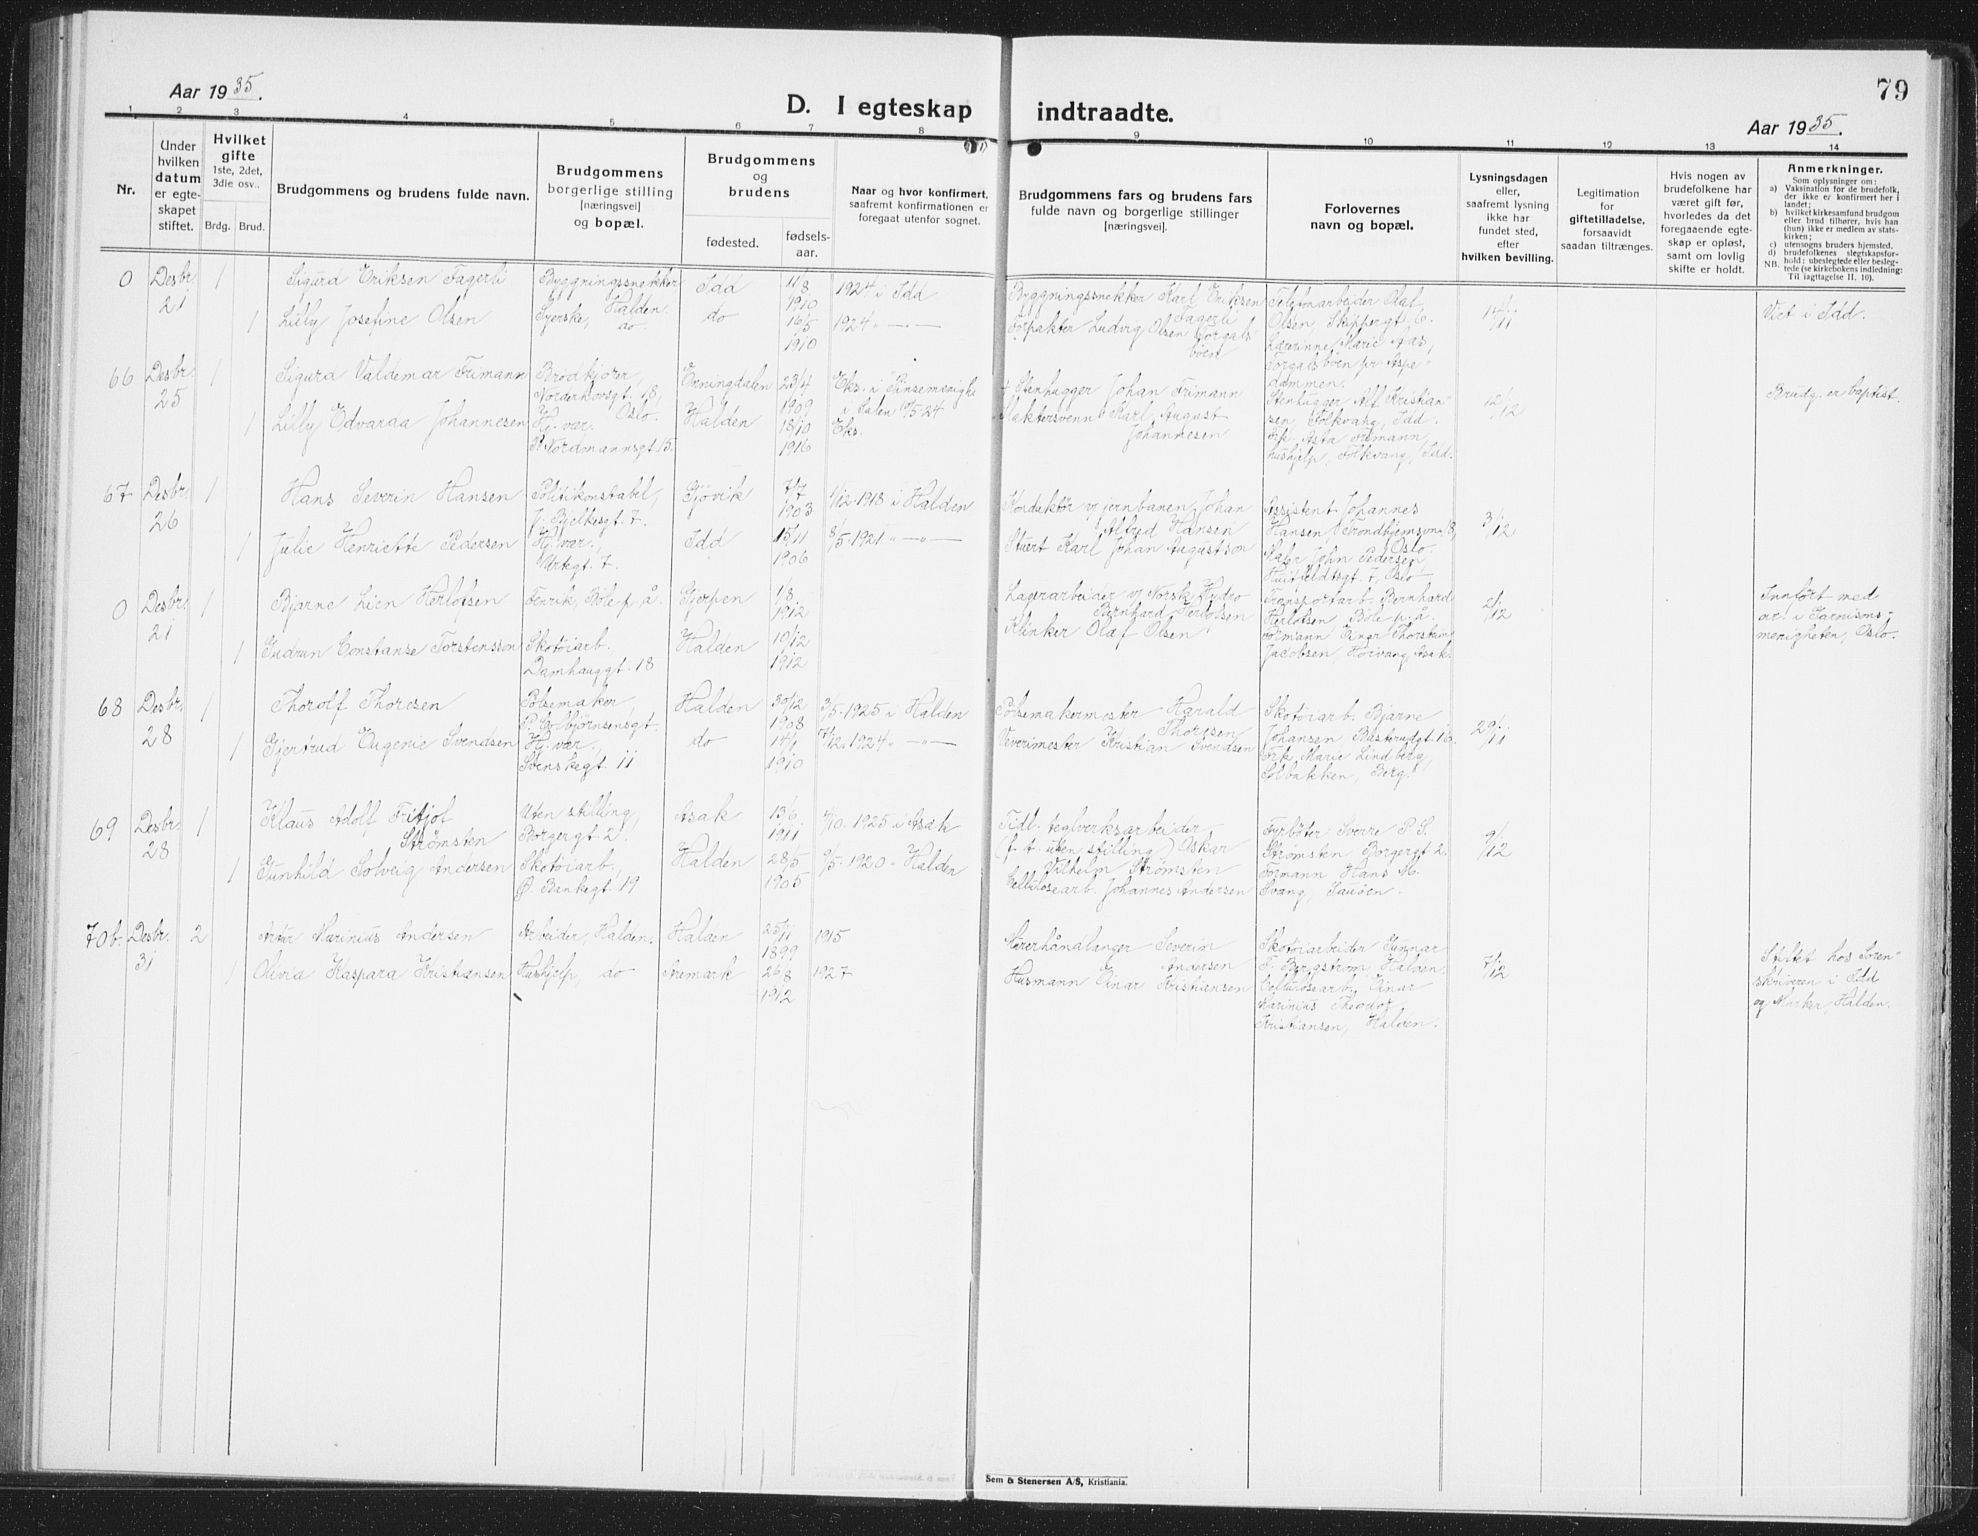 Aar 1935.
D. I egteskap indtraadte.
79
Aar 1935.
1 2 3 4 5 6 7 8 9 10 11 12 13 14
Nr.
Under hvilken datum er egteskapet stiftet.
Hvilket gifte 1ste, 2det, 3die osv..
Brdg. Brud.
Brudgommens og brudens fulde navn.
Brudgommens borgerlige stilling [næringsvei] og bopæl.
Brudgommens og brudens
fødested.
fødsels-aar.
Naar og hvor konfirmert, saafremt konfirmationen er foregaat utenfor sognet.
Brudgommens fars og brudens fars fulde navn og borgerlige stillinger [næringsvei].
Forlovernes navn og bopæl.
Lysningsdagen eller, saafremt lysning ikke har fundet sted, efter hvilken bevilling.
Legitimation for giftetilladelse, forsaavidt saadan tiltrænges.
Hvis nogen av brudefolkene har været gift før, hvorledes da det foregaaende egteskap er opløst, samt om lovlig skifte er holdt.
Anmerkninger.
Som oplysninger om:
a) Vaksination for de brudefolk, der ikke er konfirmert her i landet;
b) hvilket kirkesamfund brudgom eller brud tilhører, hvis han (hun) ikke er medlem av statskirken;
c) utensogns bruders hjemsted.
d) brudefolkenes slegtskapsforhold: ubeslegtede eller beslegtede (se kirkebokens indledning: NB. Til Iagttagelse II, 10).
0 Desbr. 21 1 Sigurd Eriksen Fagerli Byggningssnekker Halden. Idd 11/8 1910 1924 i Idd Byggningssnekker Karl Eriksen Fagerli Telefonarbeider Olaf Olsen, Skippergt. 6. 14/11 Viet i Idd.
1 Lilly Josefine Olsen Syerske, do. do 16/5 1910 1924 " — " — Forpakter Ludvig Olsen Torgalsbøen Lærerinne Marie Aas, Torgalsbøen pr Aspedammen.
66 Desbr. 25 1 Sigurd Valdemar Frimann Brødkjører, Norderhovsgt. 18, Oslo. Enningdalen 23/4 1909 Eks. i Pinsemenigh. + Stenhugger Johan Frimann Stenhugger Alf Kristiansen, Folkvang, Idd. 12/12 Brudg. er baptist.
1 Lilly Edvarda Johannesen Hj. vær. P. Nordmannsgt 15. Halden 18/10 1916 Eks. Slaktersvenn Karl August Johannesen Frk. Asta Frimann, hushjelp, Folkvang, Idd.
67 Desbr. 26 1 Hans Severin Hansen Politikonstabel, J. Bjelkesgt. 7. Gjøvik 7/7 1903 1/12-1918 i Halden Konduktør v/ jernbanen Johan Alfred Hansen Assistent Johannes Hansen, Trondhjemsvn. 18, Oslo. 3/12
1 Julie Henriette Pedersen Hj. vær., Urtegt. 7. Idd 15/11 1906 8/5-1921 " — " — Stuert Karl Johan Augustson John Pedersen Huitfeldtsgt. 7, Oslo
0 Desbr. 21 1 Bjarne Lien Herlofsen Fenrik, Böle p. å. Gjerpen 1/8 1912 Lagerarbeider v/ Norsk Hydro Bernhard Herlofsen Transportarb. Bernhard Herlofsen, Böle p. å. 2/12 Innført med nr. i Garnisonsmenigheten, Oslo.
1 Gudrun Constanse Torstensson Skotöiarb. Damhauggt. 18 Halden 19/12 1912 Klinker Olaf Olsen Formann Einar Thorstein Jacobsen, Asak.
68 Desbr. 28 1 Thorolf Thoresen Pölsemaker, P. Colbjörnsensgt. Halden 30/12 1908 3/5-1925 i Halden Pölsemakermester Harald Thoresen Skotöiarb. Bjarne Johansen Båsterudgt 16. 29/11
1 Gjertrud Eugenie Svendsen Hj. vær., Svenskegt. 11 do 14/1 1910 7/12-1924 " — " — Vevermester Kristian Svendsen Frk. Marie Lindberg, Solbakken, Berg.
69 Desbr. 28 1 Klaus Adolf Fritjof Strømsten Uten stilling, Borgergt 2. Asak 13/6 1911 4/10. 1925 i Asak Tidl. teglverksarbeider (f. t. uten stilling) Oskar Vilhelm Strømsten Fyrböter Sverre P. S. Strømsten Borgergt 2. 9/12
1 Gunhild Solveig Andersen Skotöiarb., Ø. Bankegt. 19 Halden 28/5 1905 9/5-1920 " Halden Cellulosearb. Johannes Andersen Formann Hans M. Svang, Sauöen.
70b. Desbr. 31 2 Artur Marinius Andersen Arbeider, Halden. Halden 25/11 1899 1915 Murerhåndlanger Severin Andersen Skotöiarbeider Gunnar F. Bergström, Halden. 7/12 Stiftet hos Sorenskriveren i Idd og Marker, Halden.
1 Olivia Kaspara Kristiansen Hushjelp, do Aremark 26/8 1912 1927 Husmann Einar Kristiansen Cellulosearb. Einar Marinius Theodor Kristiansen, Halden.
Sem & Stenersen A/S, Kristiania.